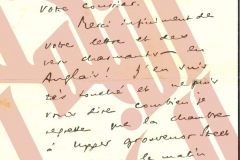 votre courrier.
Merci infiniment de
votre lettre et des
vers charmants — en
Anglais! J'en suis
très touché et ne puis
vous dire combien je
regrette que la chambre
à Upper Grosvenor Street
le matin